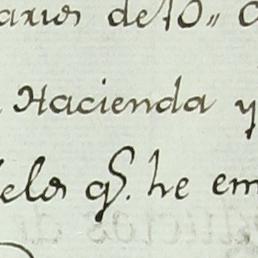 arios de fo,, 
Hacienda y
elos qᵉ. he em